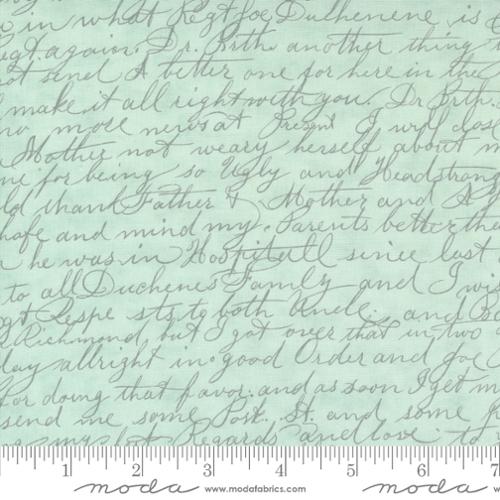 in what Regt Joe Duchenene is
Regt again. Dr. Brth. another thing
not send A better one for here in the
make it all right with you. Dr Brther
no more news at Present I will close
Mother not weary herself about m
me for being so Ugly and Headstrong
ld thank Father & Mother and A
hafe and mind my Parents better tha
n he was in Hospitall since last
to all Duchenes Family and I wis
gt Respe sts to both Uncle and
Richmond but I got over that in two
day allright in good Order and Joe
for doing that favor. and as soon I get m
send me some Post. St. and some
my best Regards and love to
1 2 3 4 5 6 7
moda www.modafabrics.com moda m